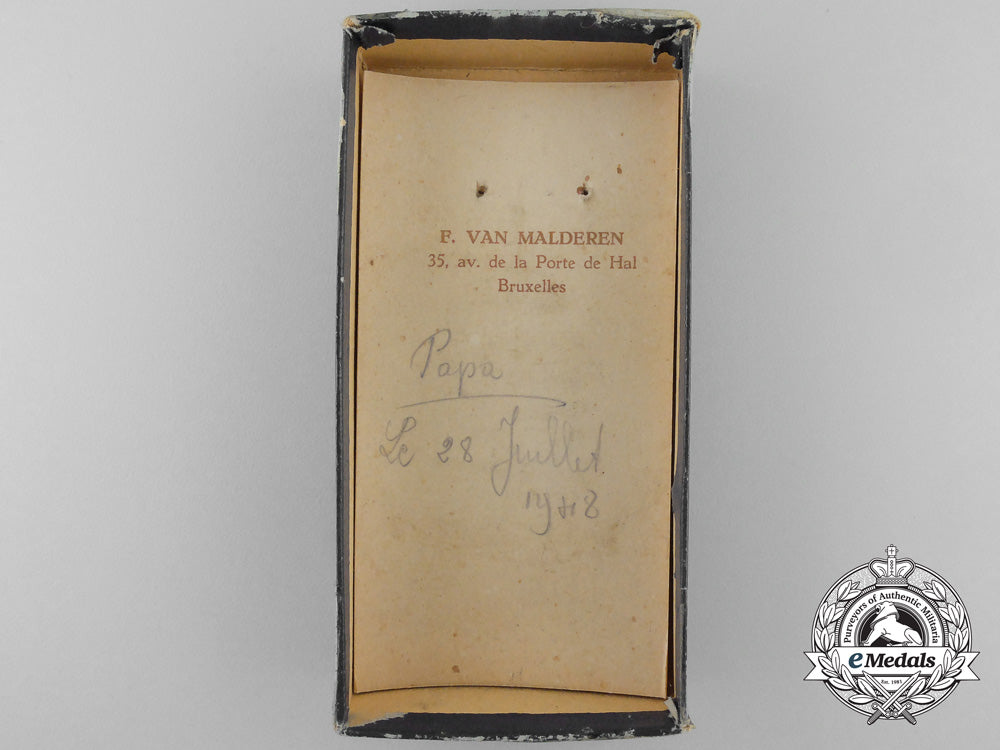 F. VAN MALDEREN
35, av. de la Porte de Hal
Bruxelles
Papa
Le 28 Juillet
1948
Purveyors of Authentic Militaria
eMedals
Est. 1981